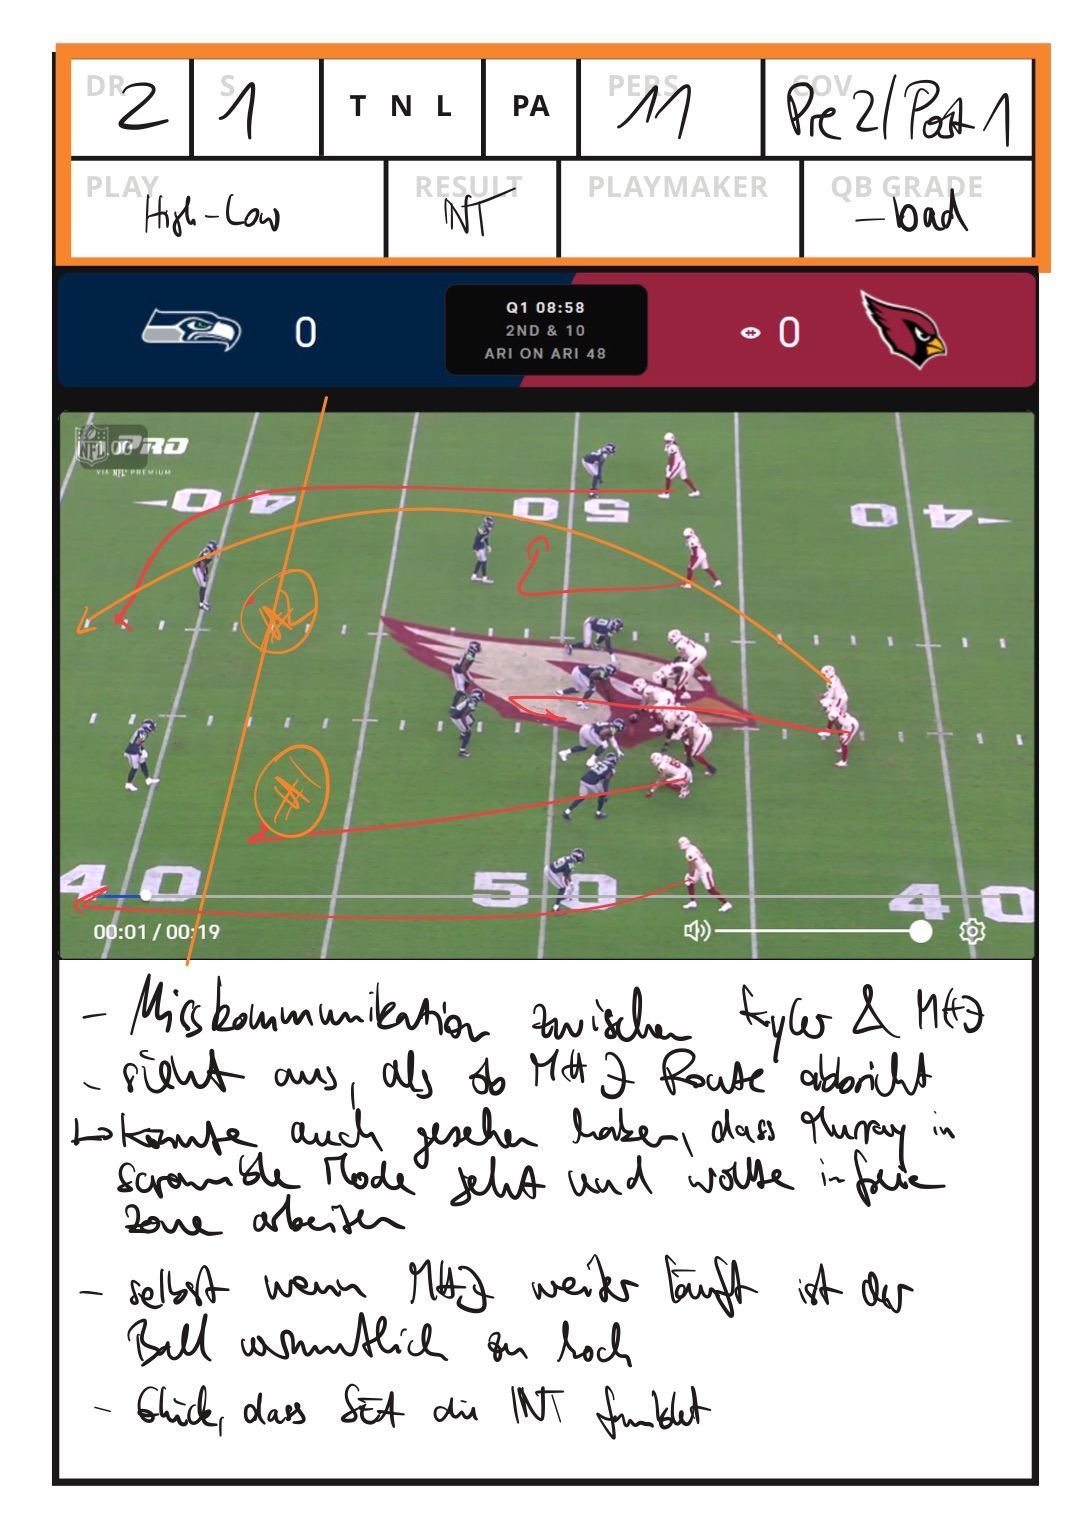 DR 2 S 1 T N L PA PERS 11 COV Pre 2/Post 1
PLAY High-Low RESULT INT PLAYMAKER QB GRADE - bad
0 Q1 08:58 0
2ND & 10
ARI ON ARI 48
NFL PRO
VIA NFL+ PREMIUM
4 0 5 0 4 0
4 0 5 0 4 0
00:01 / 00:19
- Misskommunikation zwischen Kyler & MHJ
- sieht aus, als ob MHJ Route abbricht
↳ könnte auch gesehen haben, dass Murray in
Scramble Mode geht und wollte in freie
Zone arbeiten
- selbst wenn MHJ weiter läuft ist der
Ball vermutlich zu hoch
- Glück, dass SEA die INT fumblet